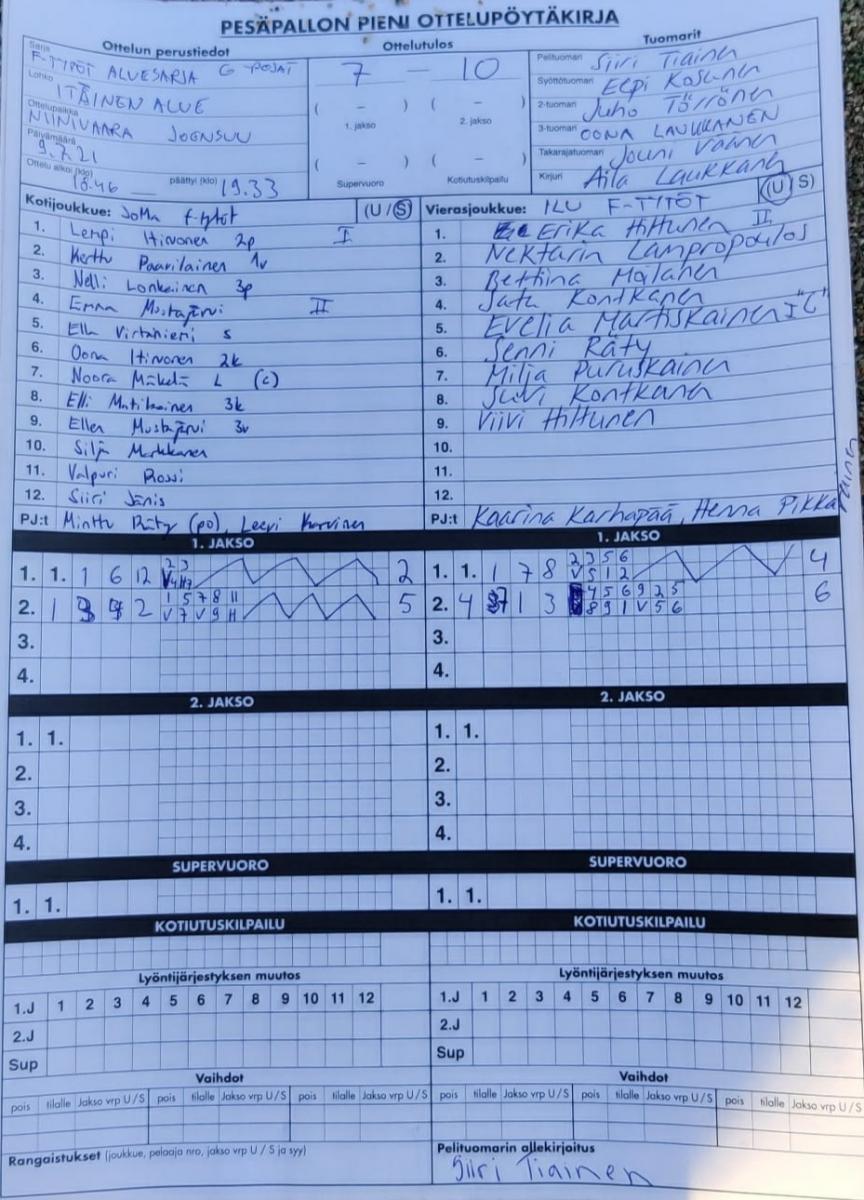 PESÄPALLON PIENI OTTELUPÖYTÄKIRJA
Ottelun perustiedot
Ottelutulos
Tuomarit
Sarja F-TYTÖT ALUESARJA G POJAT
Lohko ITÄINEN ALUE
Ottelupaikka NIINIVAARA JOENSUU
Päivämäärä 9.7.21
Ottelu alkoi (klo) 18.46 päättyi (klo) 19.33
7 – 10
( – ) ( – )
1. jakso 2. jakso
( – ) ( – )
Supervuoro Kotiutuskilpailu
Pelituomari Siiri Tiainen
Syöttötuomari Eepi Kosunen
2-tuomari Juho Törrönen
3-tuomari OONA LAUKKANEN
Takarajatuomari Jouni Väänen
Kirjuri Aila Laukkanen
Kotijoukkue: JoMa f-tytöt (U / S)
1. Lempi Hirvonen 2p I
2. Kerttu Paarilainen 1v
3. Nelli Lonkainen 3p
4. Emma Mustajärvi II
5. Ella Virtaniemi s
6. Oona Hirvonen 2k
7. Noora Mäkelä L (c)
8. Elli Matikainen 3k
9. Ellen Mustajärvi 3v
10. Silja Markkanen
11. Valpuri Rossi
12. Siiri Jänis
PJ:t Minttu Räty (po), Leevi Karvinen
Vierasjoukkue: ILU F-TYTÖT (U / S)
1. Erika Hiltunen II
2. Nektaria Lampropoulos
3. Bettina Malanen
4. Satu Kontkanen
5. Evelia Martiskainen I "C"
6. Senni Räty
7. Milja Puruskainen
8. Suvi Kontkanen
9. Viivi Hiltunen
10.
11.
12.
PJ:t Kaarina Karhapää, Henna Pikkarainen
1. JAKSO
1. 1. 1 6 12 2 3 2
2. 1 2 1 5 7 8 11 5
V 7 V 9 11
3.
4.
1. JAKSO
1. 1. 1 7 8 2 3 5 6 4
V 5 1 2
2. 4 1 3 4 5 6 9 2 5 6
8 9 1 V 5 6
3.
4.
2. JAKSO
1. 1.
2.
3.
4.
2. JAKSO
1. 1.
2.
3.
4.
SUPERVUORO
1. 1.
SUPERVUORO
1. 1.
KOTIUTUSKILPAILU
KOTIUTUSKILPAILU
Lyöntijärjestyksen muutos
1.J 1 2 3 4 5 6 7 8 9 10 11 12
2.J
Sup
Lyöntijärjestyksen muutos
1.J 1 2 3 4 5 6 7 8 9 10 11 12
2.J
Sup
Vaihdot
pois tilalle Jakso vrp U/S pois tilalle Jakso vrp U/S pois tilalle Jakso vrp U/S
Vaihdot
pois tilalle Jakso vrp U/S pois tilalle Jakso vrp U/S pois tilalle Jakso vrp U/S
Rangaistukset (joukkue, pelaaja nro, jakso vrp U / S ja syy)
Pelituomarin allekirjoitus
Siiri Tiainen